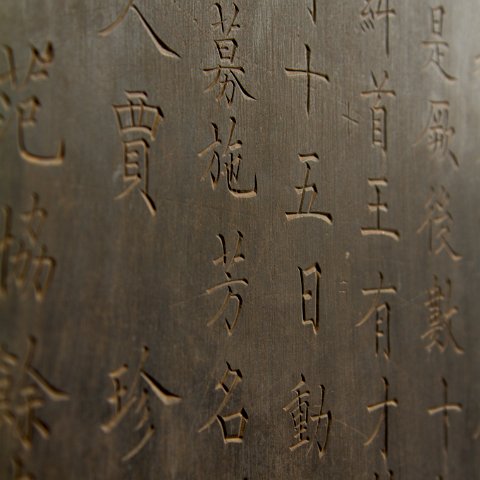 是厥後數十
糾首王有才
十五日動
募施芳名
人賈珍
范協餘